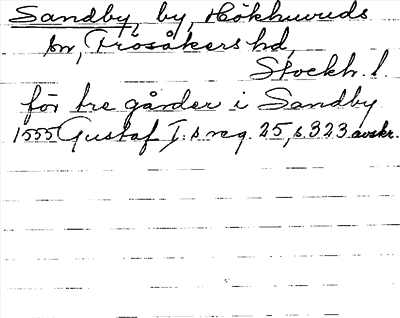 Sandby, by, Hökhuvuds
sn, Frösåkers hd,
Stockh. l.
för tre gårder i Sandby
1555 Gustaf I:s reg. 25, s. 323 avskr.